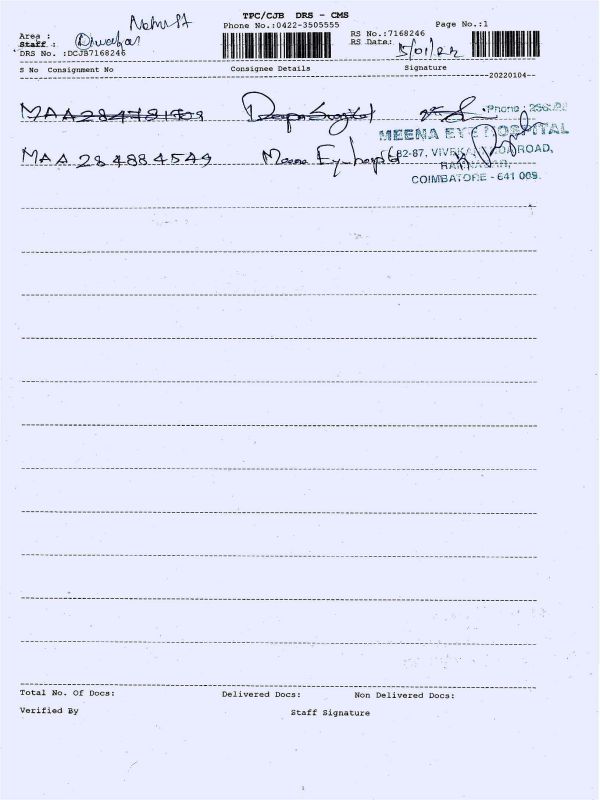 TPC/CJB DRS - CMS
Phone No.:0422-3505555 Page No.:1
Area : Nehru St
Staff : Diwakar
RS No.:7168246
RS Date: 5/01/22
DRS No. :DCJB7168246
S No Consignment No Consignee Details Signature
20220104
MAA284781509 Deepa
Phone :
MEENA EYE HOSPITAL
82-87, ROAD,
MAA 284884549 Meena Eye hospital
COIMBATORE - 641 009.
Total No. Of Docs: Delivered Docs: Non Delivered Docs:
Verified By Staff Signature
1